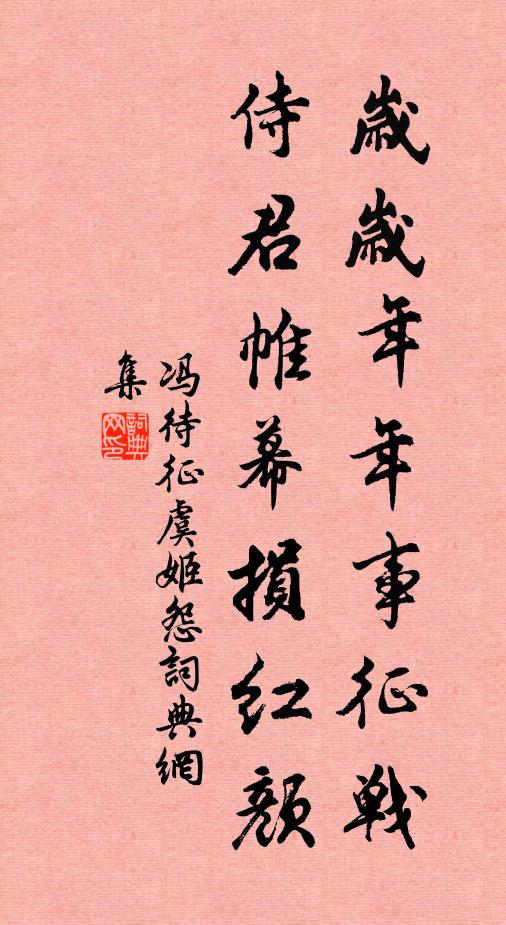 歲歲年年事征戰
侍君帷幕損红顏
冯待征虞姬怨詞典網
集
詞典
网印